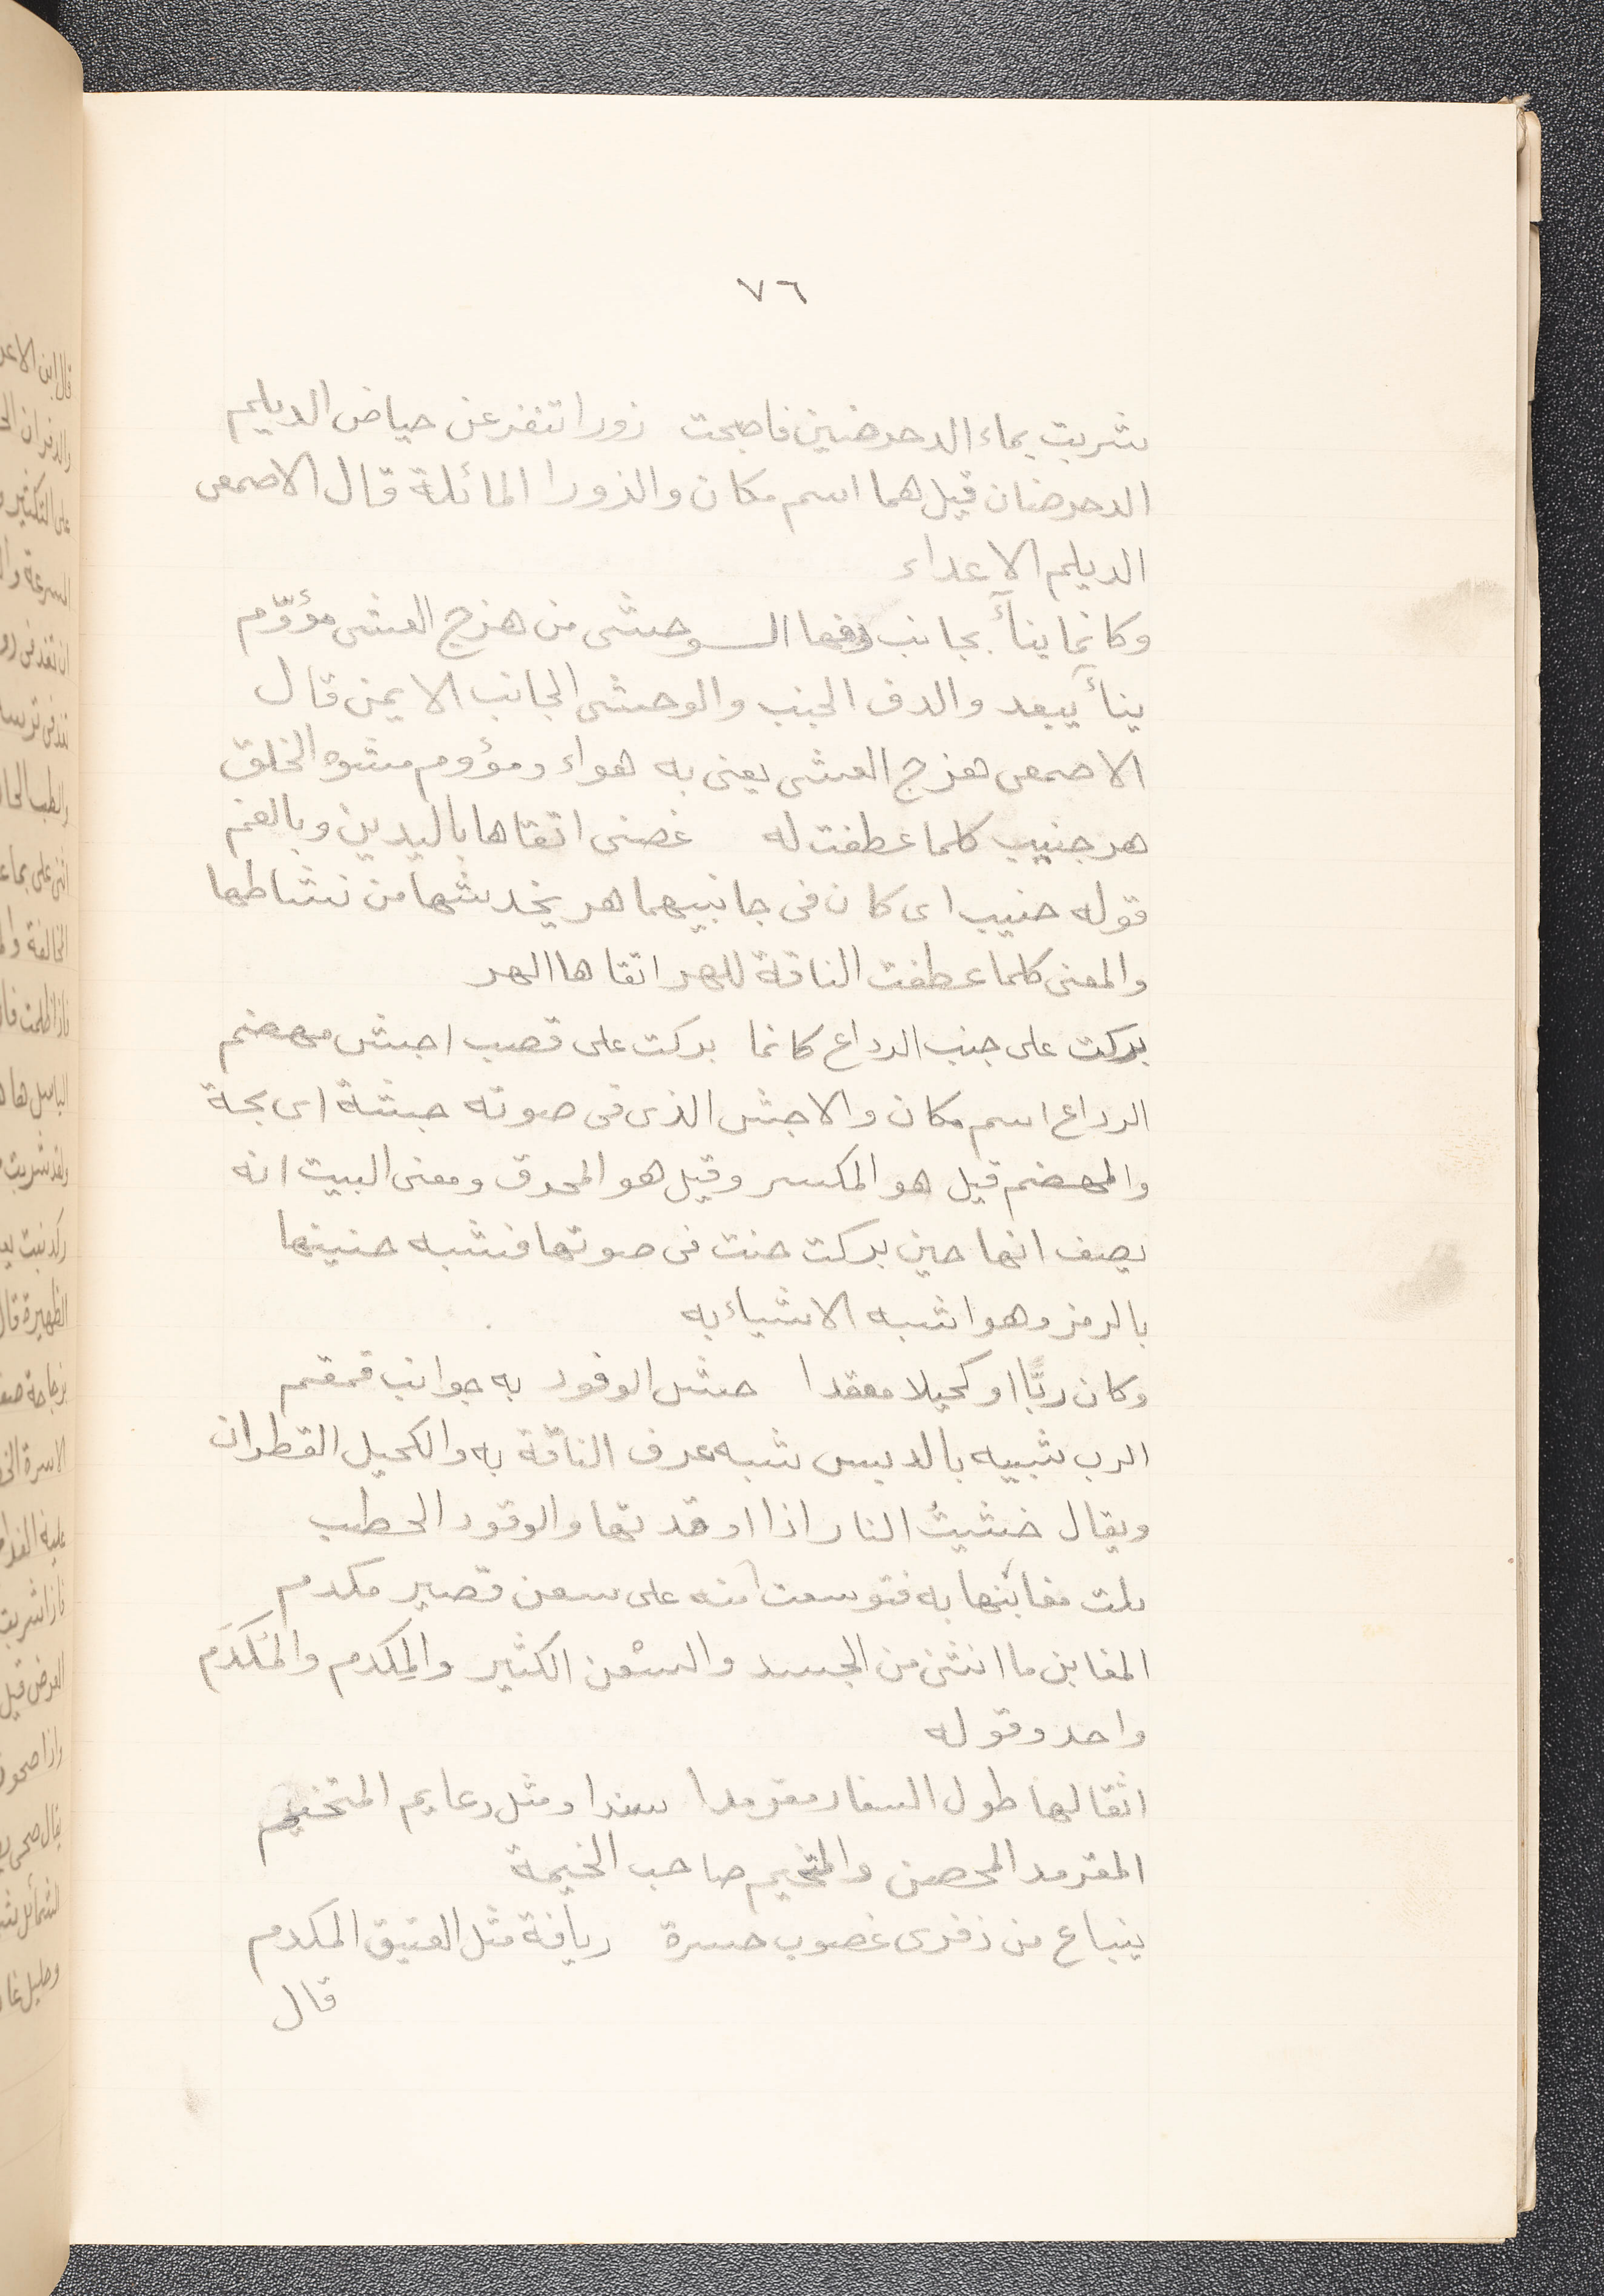 ٧٦
شربت بماء الدحرضين فاصبحت زورا تنفر عن حياض الديلم
الدحرضان قيل هما اسم مكان والزورا المائلة قال الاصمعى
الديلم الاعداء
وكانما ينأ بجانب دفها الـوحشى من هزج العشى مؤوّم
ينأ يبعد والدف الجنب والوحشى الجانب الايمن قال
الاصمعى هزج العشى يعنى به هواء ومؤوم مشوه الخلق
هر جنيب كلما عطفت له غضبى اتقاها باليدين وبالفم
قوله جنيب اى كان فى جانبيهما هر يخدشها من نشاطها
والمعنى كلما عطفت الناقة للهر اتقاها الهر
بركت على جنب الرداع كانما بركت على قصب اجش مهضم
الرداع اسم مكان والاجش الذى فى صوته جشة اى بحة
والمهضم قيل هو المكسر وقيل هو المحرق ومعنى البيت انه
يصف انها حين بركت حنت فى صوتها فشبه حنينها
بالزمر وهو اشبه الاشياء به
وكان ربًّا او كحيلا معقدا حش الوقود به جوانب قمقم
الرب شبيه بالدبس شبه عرف الناقة به والكحيل القطران
ويقال خشيتُ النار اذا اوقدتها والوقود الحطب
بلت مغابنها به فتوسعت منه على سعن قصير مكدم
المغابن ما انثنى من الجسد والسْعن الكثير والمِكدم والمُكَدَم
واحد وقوله
اثقا لها طول السفار مقرمدا سندا ومثل دعايم المتخيم
المقرمد المحصن والمتخيم صاحب الخيمة
ينباع من ذفرى غضوب حسرة زيافة مثل الفنيق المكدم
قال